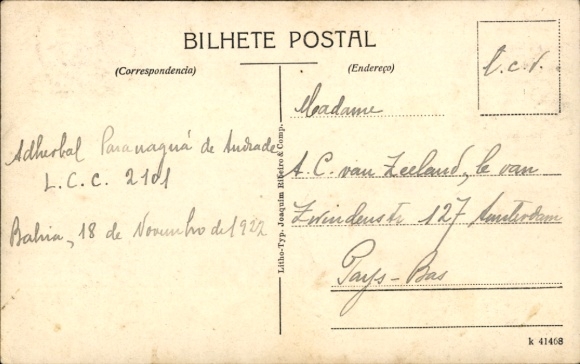 BILHETE POSTAL
(Correspondencia)
(Endereço)
L.c.V.
Madame
Adherbal Paranaguá de Andrade
L.C.C. 2101
Bahia, 18 de Novembro de 1922
A. C. van Zeeland, le van
127 Amsterdam
Pays-Bas
Litho-Typ. Joaquim Ribeiro & Comp.
k 41468